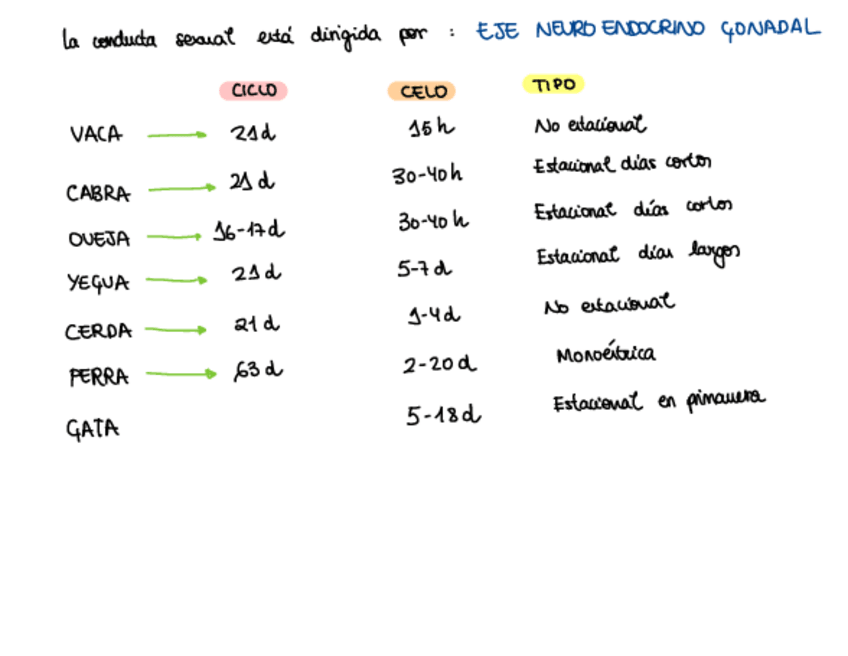 La conducta sexual está dirigida por : EJE NEUROENDOCRINO GONADAL
CICLO CELO TIPO
VACA → 21d 15h No estacional
CABRA → 21d 30-40h Estacional días cortos
OVEJA → 16-17d 30-40h Estacional días cortos
YEGUA → 21d 5-7d Estacional días largos
CERDA → 21d 1-4d No estacional
PERRA → 63d 2-20d Monoéstrica
GATA 5-18d Estacional en primavera